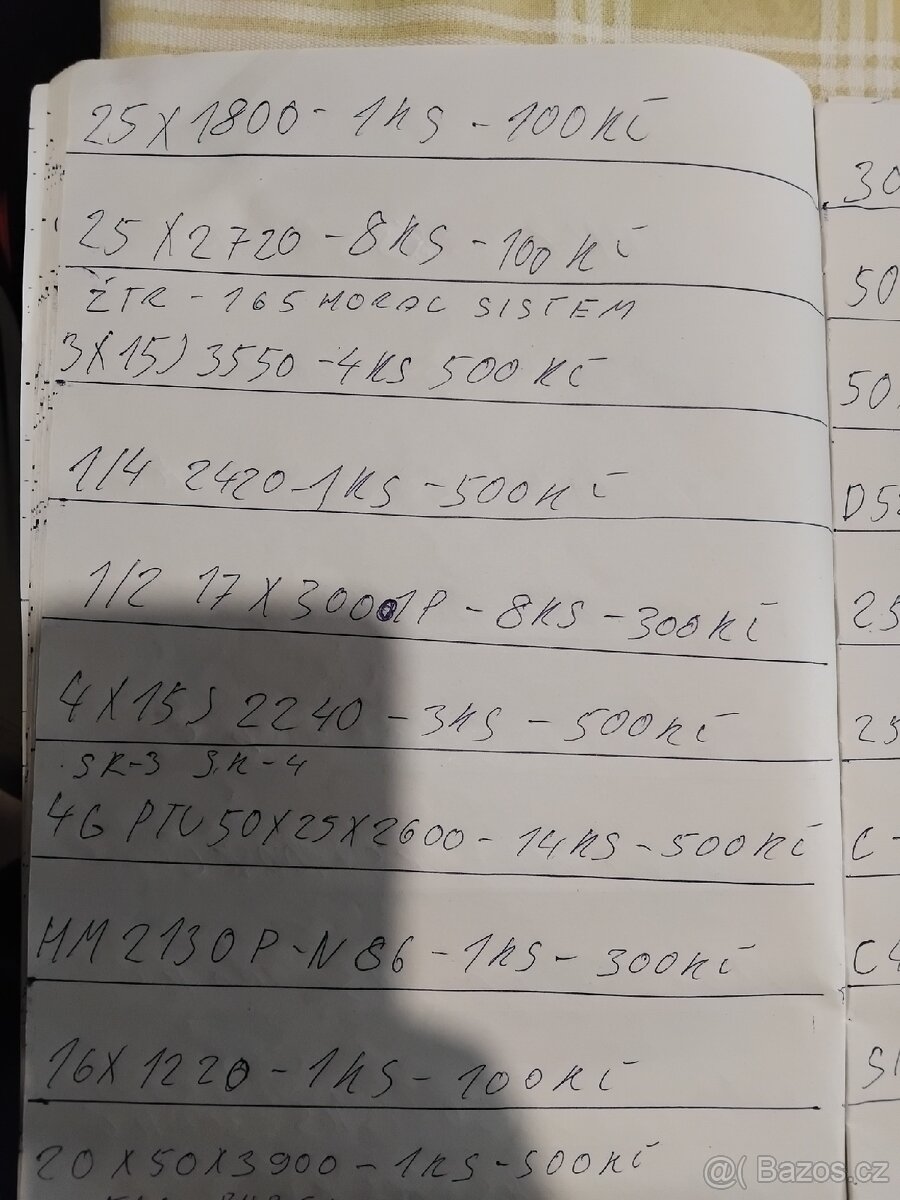 25X1800 - 1KS - 100KČ
25X2720 - 8KS - 100KČ
ŽTR - 165 MORAC SISTEM
3X15J 3550 - 4KS 500KČ
1/4 2420 - 1KS - 500KČ
1/2 17X3000 1P - 8KS - 300KČ
4X15J 2240 - 3KS - 500KČ
SK-3 SK-4
4G PTV 50X25X2600 - 14KS - 500KČ
HM 2130 P-N86 - 1KS - 300KČ
16X1220 - 1KS - 100KČ
20X50X3900 - 1KS - 500KČ
30
50
50
D5
25
25
C -
C4
SI
@( Bazos.cz